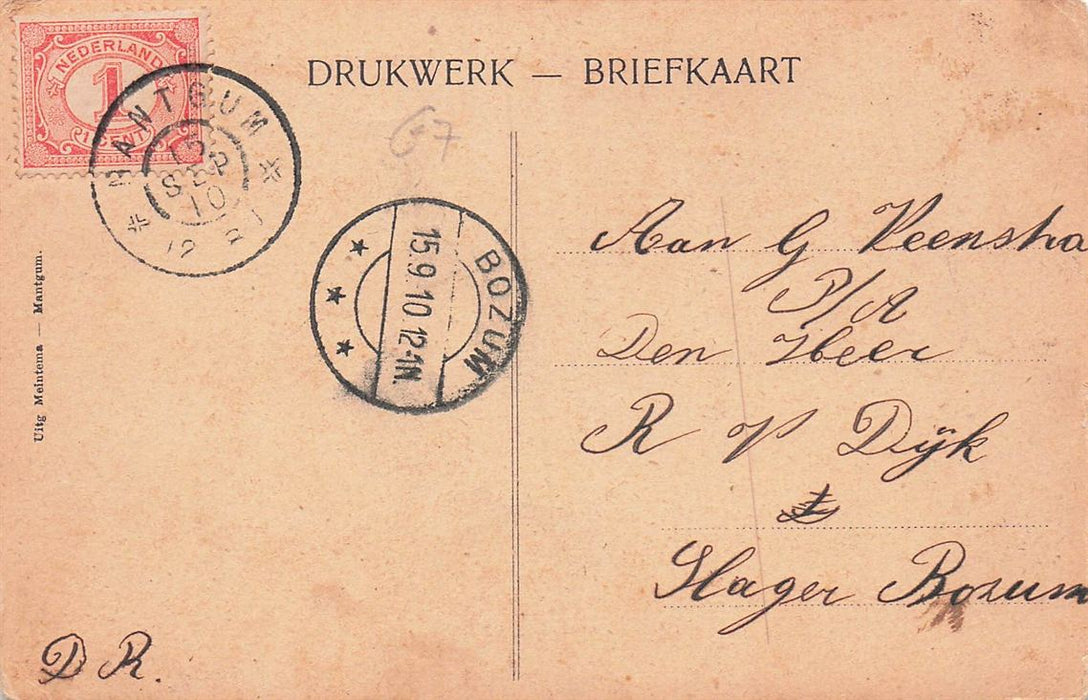 NEDERLAND
1
1 CENT
DRUKWERK — BRIEFKAART
MANTGUM
15
SEP
10
67
BOZUM
15.9.10.12-1N.
Uitg Meintema — Mantgum.
Aan G Veenstra
P/A
Den Heer
R v Dijk
Slager Bozum
D R.